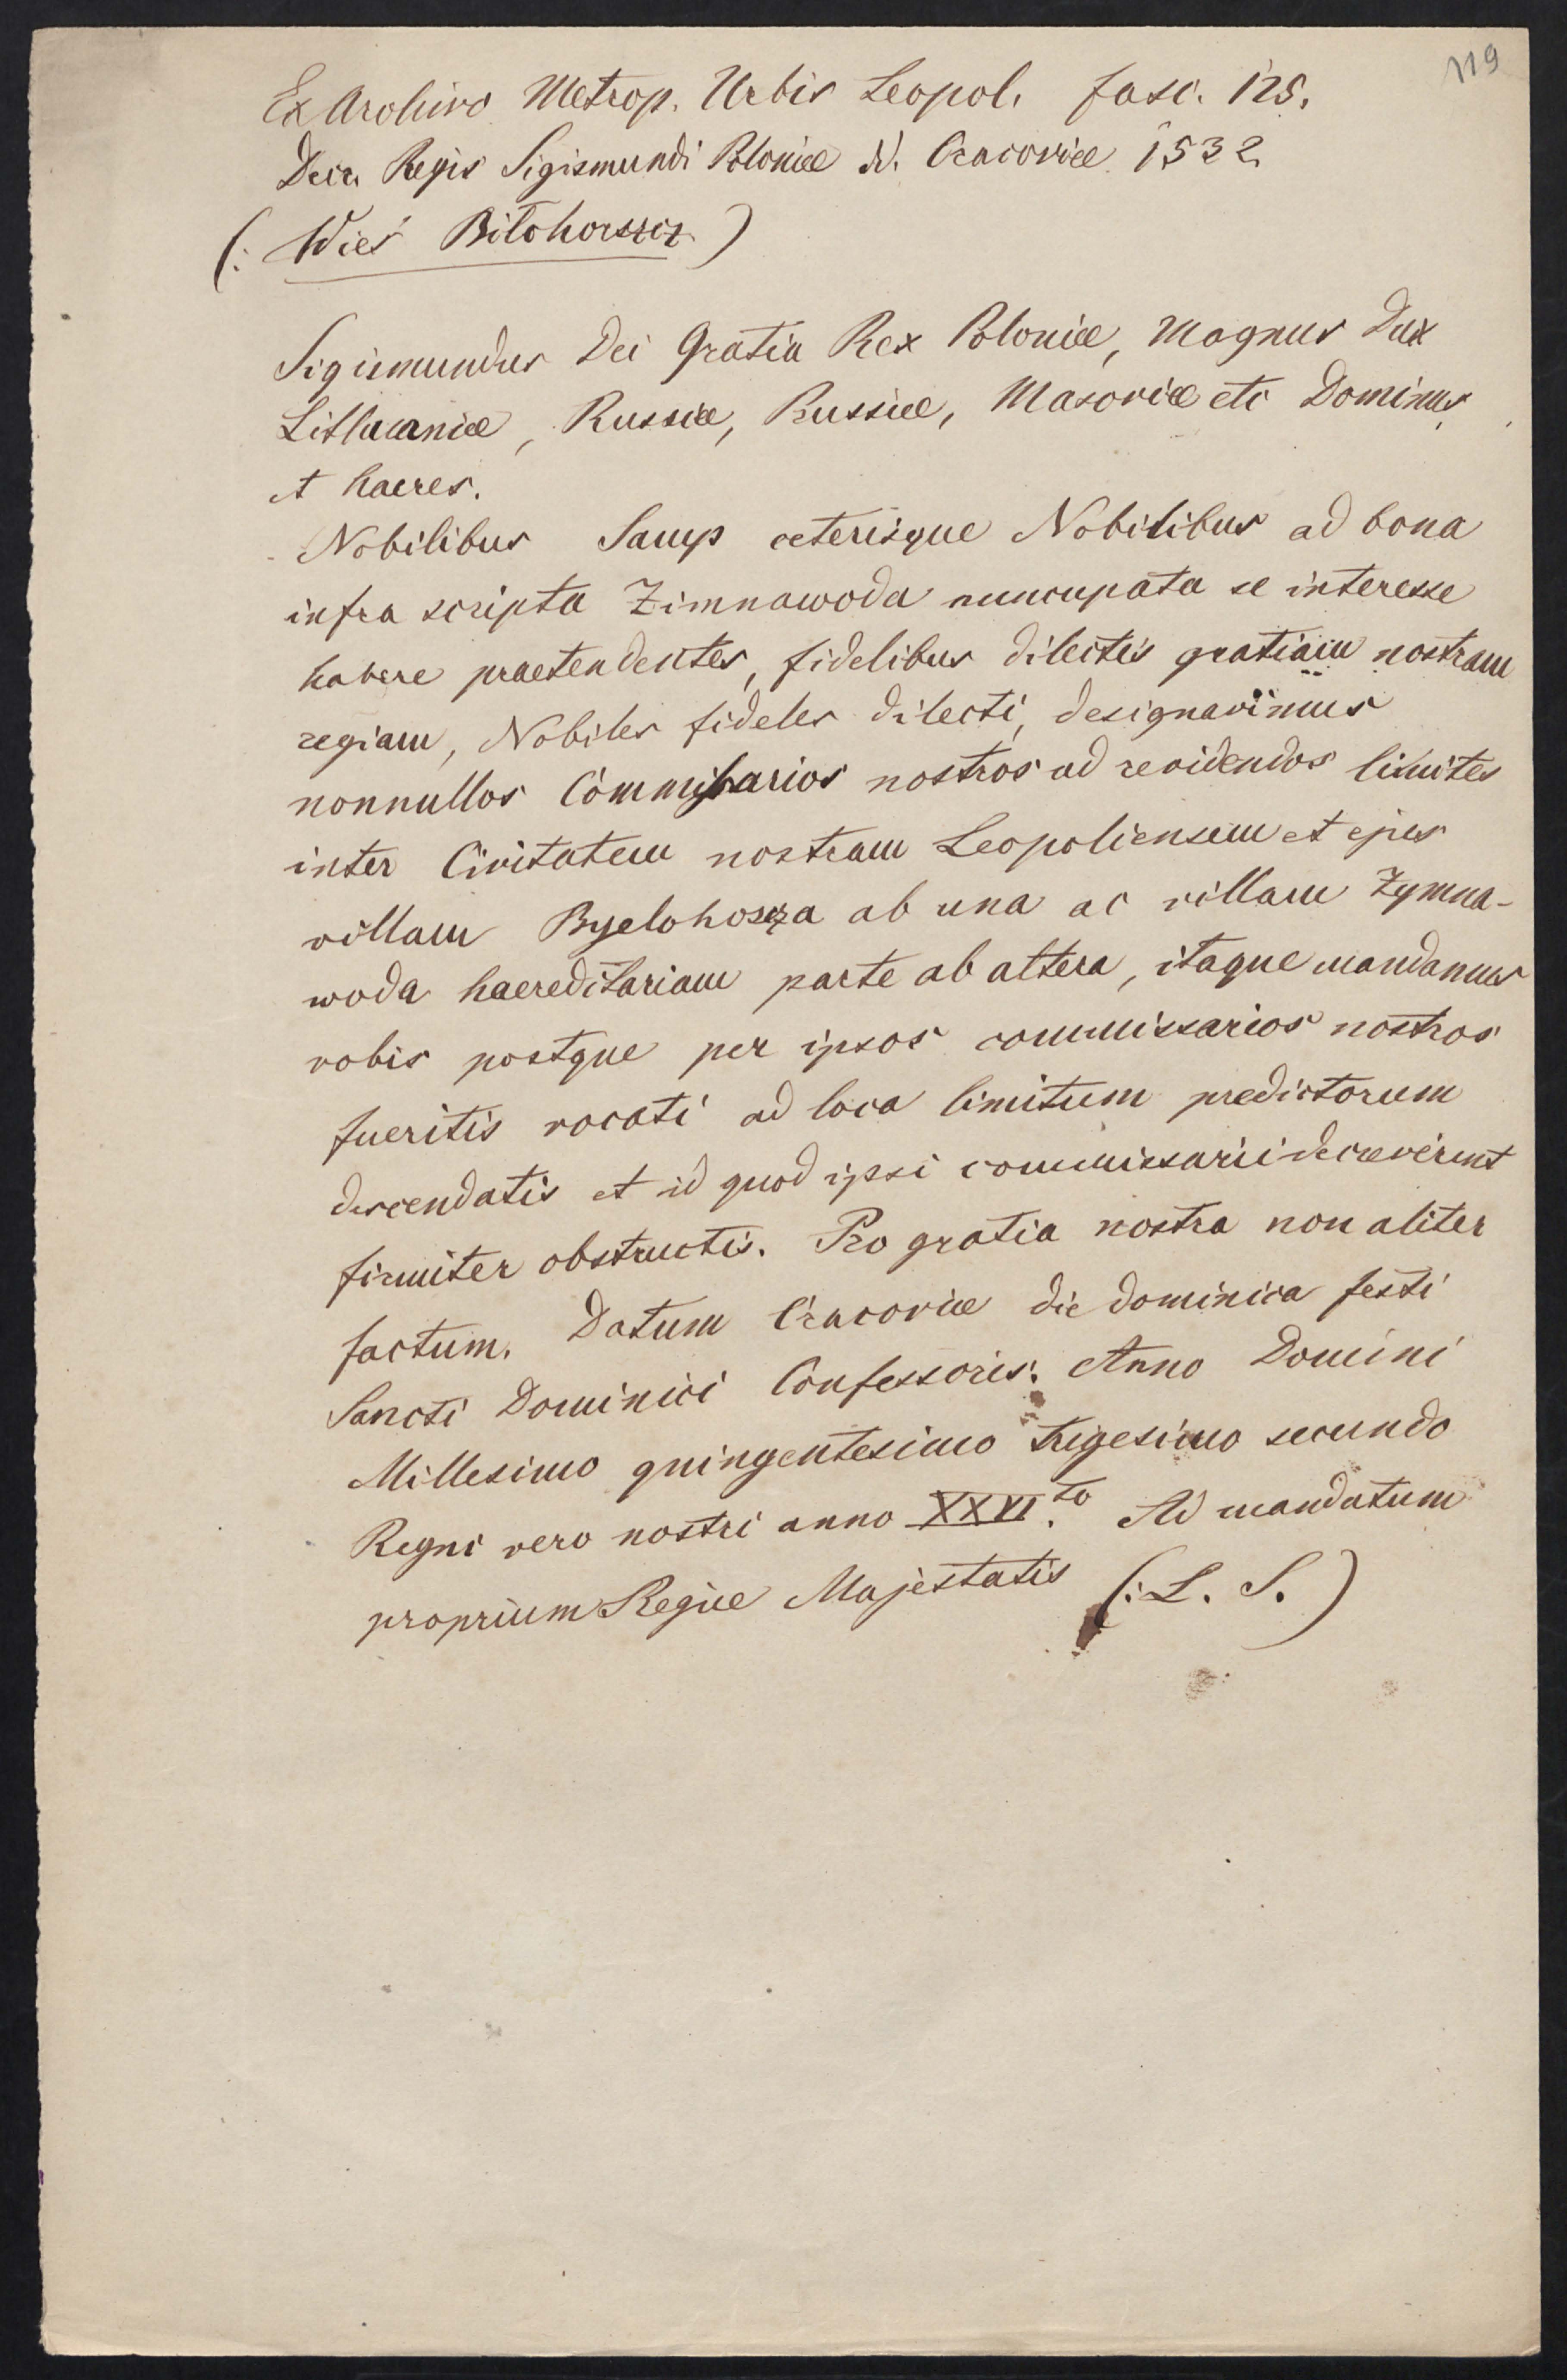 119
Ex Archivo Metrop. Urbis Leopol. fasc. 125.
Decr. Regis Sigismundi Poloniæ dd. Cracoviæ 1532
(: Wieś Biłohorszcz )
Sigismundus Dei Gratia Rex Poloniæ, Magnus Dux
Lithuaniæ, Russiæ, Prussiæ, Masoviæ etc Dominus,
et haeres.
Nobilibus Samp ceterisque Nobilibus ad bona
infra scripta Zimnawoda nuncupata se interesse
habere praetendentes, fidelibus dilectis gratiam nostram
regiam, Nobiles fideles dilecti, designavimus
nonnullos Commissarios nostros ad revidendos limites
inter Civitatem nostram Leopoliensem et ejus
villam Byelohoscza ab una ac villam Zymna-
woda haereditariam parte ab altera, itaque mandamus
vobis postque per ipsos commissarios nostros
fueritis vocati ad loca limitum predictorum
descendatis et id quod ipsi commissarii decreverint
firmiter obstructis. Pro gratia nostra non aliter
factum. Datum Cracoviæ die dominica festi
Sancti Dominici Confessoris. Anno Domini
Millesimo quingentesimo trigesimo secundo
Regni vero nostri anno XXVI.to Ad mandatum
proprium Regiæ Majestatis (: L. S. )